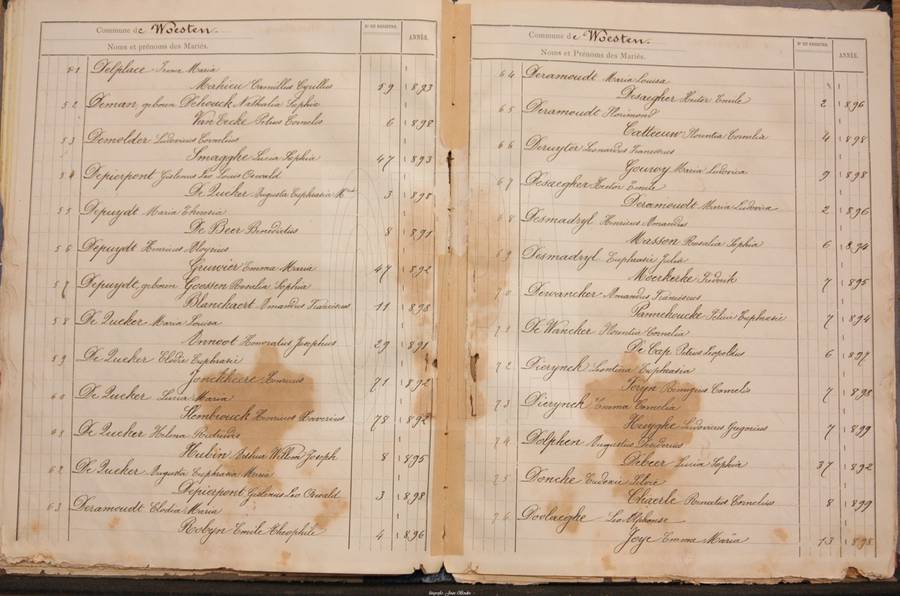 Commune de Woesten.
Noms et prénoms des Mariés. N° DU REGISTRE. ANNÉE.
51 Delplace Maria
Mahieu Camillus Cyrillus 59 1893
52 Deman geboren Dehouck Nathalia Sophia
Van Eecke Petrus Cornelis 6 1898
53 Demolder Ludovicus Cornelius
Smagghe Lucia Sophia 47 1893
54 Depierpont Gislenus Leo Louis Oswald
De Queker Augusta Euphrasia M 3 1898
55 Depuydt Maria Theresia
De Beer Benedictus 8 1891
56 Depuydt Henricus Aloysius
Gruwier Emma Maria 47 1892
57 Depuydt geboren Goessen Rosalia Sophia
Blanckaert Amandus Franciscus 11 1898
58 De Queker Maria Louisa
Annoot Honoratus Josephus 29 1891
59 De Queker Elodie Euphrasie
Jonckheere Henricus 71 1892
60 De Queker Lucia Maria
Slembrouck Henricus Xaverius 78 1892
61 De Queker Helena
Hubin Arthur Willem Joseph 8 1895
62 De Queker Augusta Euphrasia Maria
Depierpont Gislenus Leo Oswald 3 1898
63 Deramoudt Elodia Maria
Robyn Emile Theophile 4 1896
Commune de Woesten.
Noms et Prénoms des Mariés. N° DU REGISTRE. ANNÉE.
64 Deramoudt Maria Louisa
Desaegher Hector Emile 2 1896
65 Deramoudt Florimond
Catteeuw Florentia Cornelia 4 1898
66 Deruyter Leonardus Franciscus
Gouwy Maria Ludovica 9 1898
67 Desaegher Hector Emile
Deramoudt Maria Ludovica 2 1896
68 Desmadryl Henricus Amandus
Masson Rosalia Sophia 6 1894
69 Desmadryl Euphrasie Julia
Moerkerke Frederik 7 1895
70 Dewancker Amandus Franciscus
Pannekoucke Euphrasie 7 1894
71 De Wancker Florentia Cornelia
De Cap Petrus Leopoldus 6 1897
72 Dierynck Leontina Euphrasia
Feryn Remigius Cornelis 7 1898
73 Dierynck Emma Cornelia
Huyghe Ludovicus Gregorius 7 1899
74 Dolphen Augustus Desiderius
Debeer Lucia Sophia 37 1892
75 Doncke
Claerle Cornelius 8 1899
76 Doolaeghe Leo Alphonse
Joye Emma Maria 13 1898